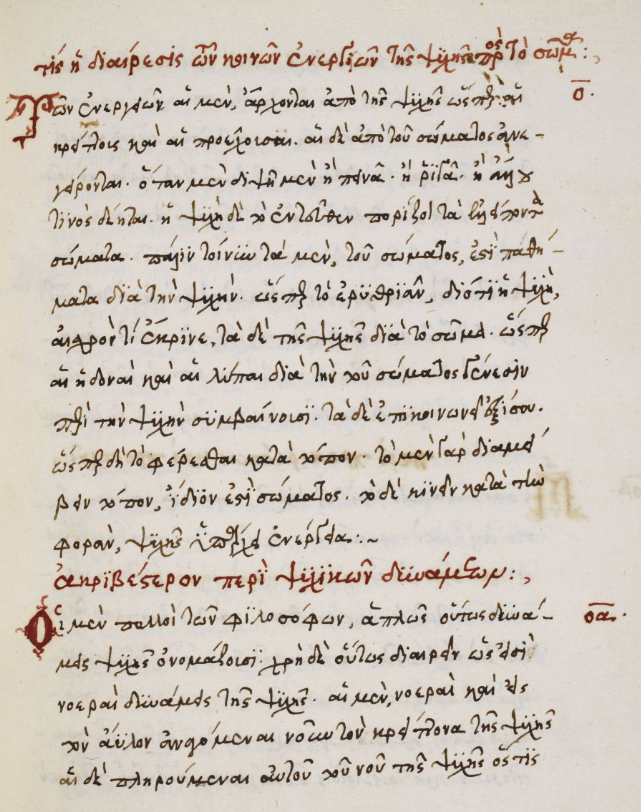 τίς ἡ διαίρεσις τῶν κοινῶν ἐνεργειῶν τῆς ψυχῆς πρὸς τὸ σῶμα:,
Τῶν ἐνεργειῶν αἱ μὲν, ἄρχονται ἀπὸ τῆς ψυχῆς ὥσπερ αἱ ο̅.
κρείττους καὶ αἱ προέχουσαι. αἱ δὲ ἀπὸ τοῦ σώματος ἀνε-
γείρονται. ὅταν μὲν διψῆ μὲν ἢ πεινᾶ. ἢ ῥιγᾶ. ἢ
τινὸς δέηται. ἡ ψυχὴ δὲ τὸ ἐντεῦθεν πορίζει τὰ
σώματα. πάλιν τοίνυν τὰ μὲν, τοῦ σώματος, ἐστὶ παθή-
ματα διὰ τὴν ψυχήν. ὥσπερ τὸ ἐρυθριᾶν, διότι ἡ ψυχὴ,
αἰσχρόν τί ἔκρινε, τὰ δὲ τῆς ψυχῆς διὰ τὸ σῶμα. ὥσπερ
αἱ ἡδοναὶ καὶ αἱ λύπαι διὰ τὴν τοῦ σώματος γένεσιν
περὶ τὴν ψυχὴν συμβαίνουσι. τὰ δὲ ἐπικοινωνεῖ ἐξίσου.
ὥσπερ δὴ τὸ φέρεσθαι κατὰ τόπον. τὸ μὲν γὰρ διαμεί
βειν τόπον, ἴδιόν ἐστι σώματος. τὸ δὲ κινεῖν κατὰ τὴν
φορὰν, ψυχῆς ὑπῆρχε ἐνέργεια:~
ἀκριβέστερον περὶ ψυχικῶν δυνάμεων:,
Οἱ μὲν πολλοὶ τῶν φιλοσόφων, ἁπλῶς οὕτως δυνά- οα̅.
μεις ψυχῆς ὀνομάζουσι. χρὴ δὲ οὕτως διαιρεῖν ὡς εἰσὶ
νοεραὶ δυνάμεις τῆς ψυχῆς. αἱ μὲν, νοεραὶ καὶ εἰς
τὸν ἄϋλον ἀναφερόμεναι νοῦν τὸν κρείττονα τῆς ψυχῆς
αἱ δὲ πληρούμεναι αὐτοῦ τοῦ νοῦ τῆς ψυχῆς ὅς τις